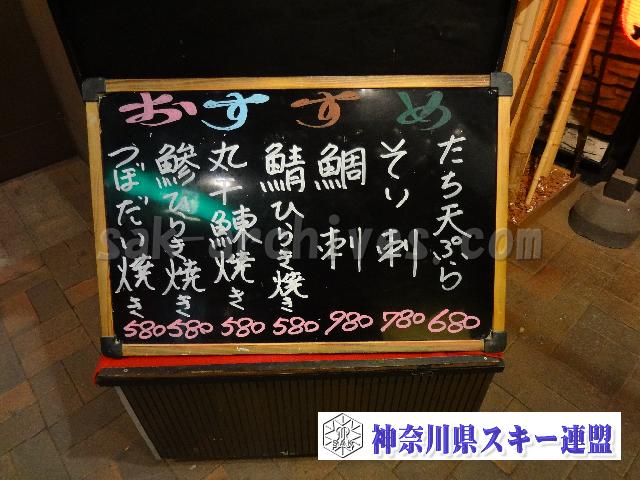 おすすめ
たち天ぷら
そい刺
鯛刺
鯖ひらき焼き
丸干鰊焼き
鰺ひらき焼き
つぼだい焼き
580 580 580 580 980 780 680
sak-archives.com
神奈川県スキー連盟